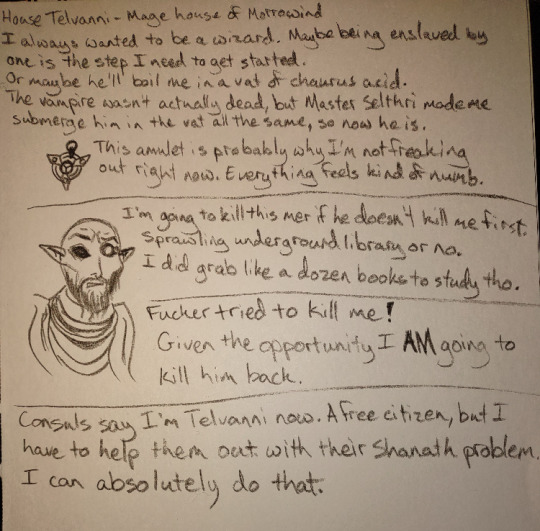 House Telvanni - Mage house of Morrowind
I always wanted to be a wizard. Maybe being enslaved by
one is the step I need to get started.
Or maybe he'll boil me in a vat of chaurus acid.
The vampire wasn't actually dead, but Master Selthri made me
submerge him in the vat all the same, so now he is.
This amulet is probably why I'm not freaking
out right now. Everything feels kind of numb.
I'm going to kill this mer if he doesn't kill me first.
Sprawling underground library or no.
I did grab like a dozen books to study tho.
Fucker tried to kill me!
Given the opportunity I AM going to
kill him back.
Consuls say I'm Telvanni now. A free citizen, but I
have to help them out with their Shanath problem.
I can absolutely do that.